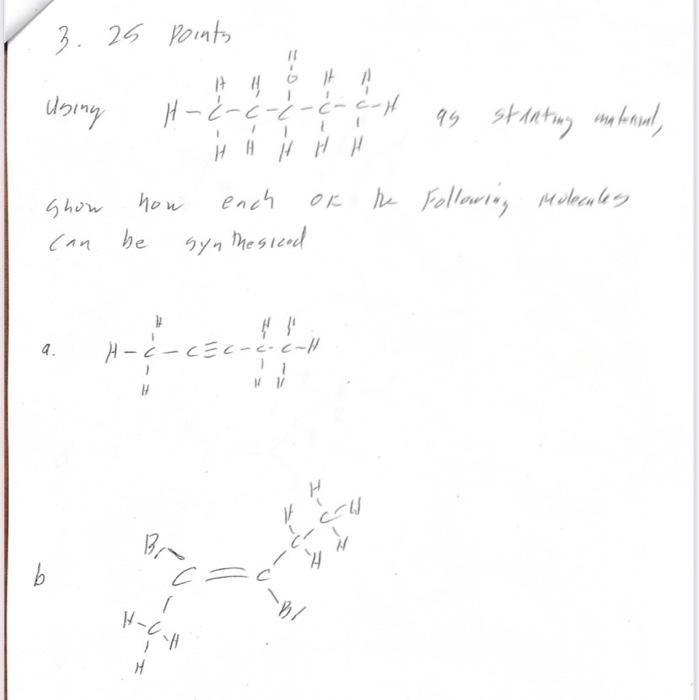 3. 25 Points
H
H H O H H
Using H-C-C-C-C-C-H as starting material,
H H H H H
Show how each of the Following Molecules
Can be synthesized
H H H
a. H-C-C≡C-C-C-H
H H H
H
H C-H
Br C H
H
b C=C
Br
H-C
H
H